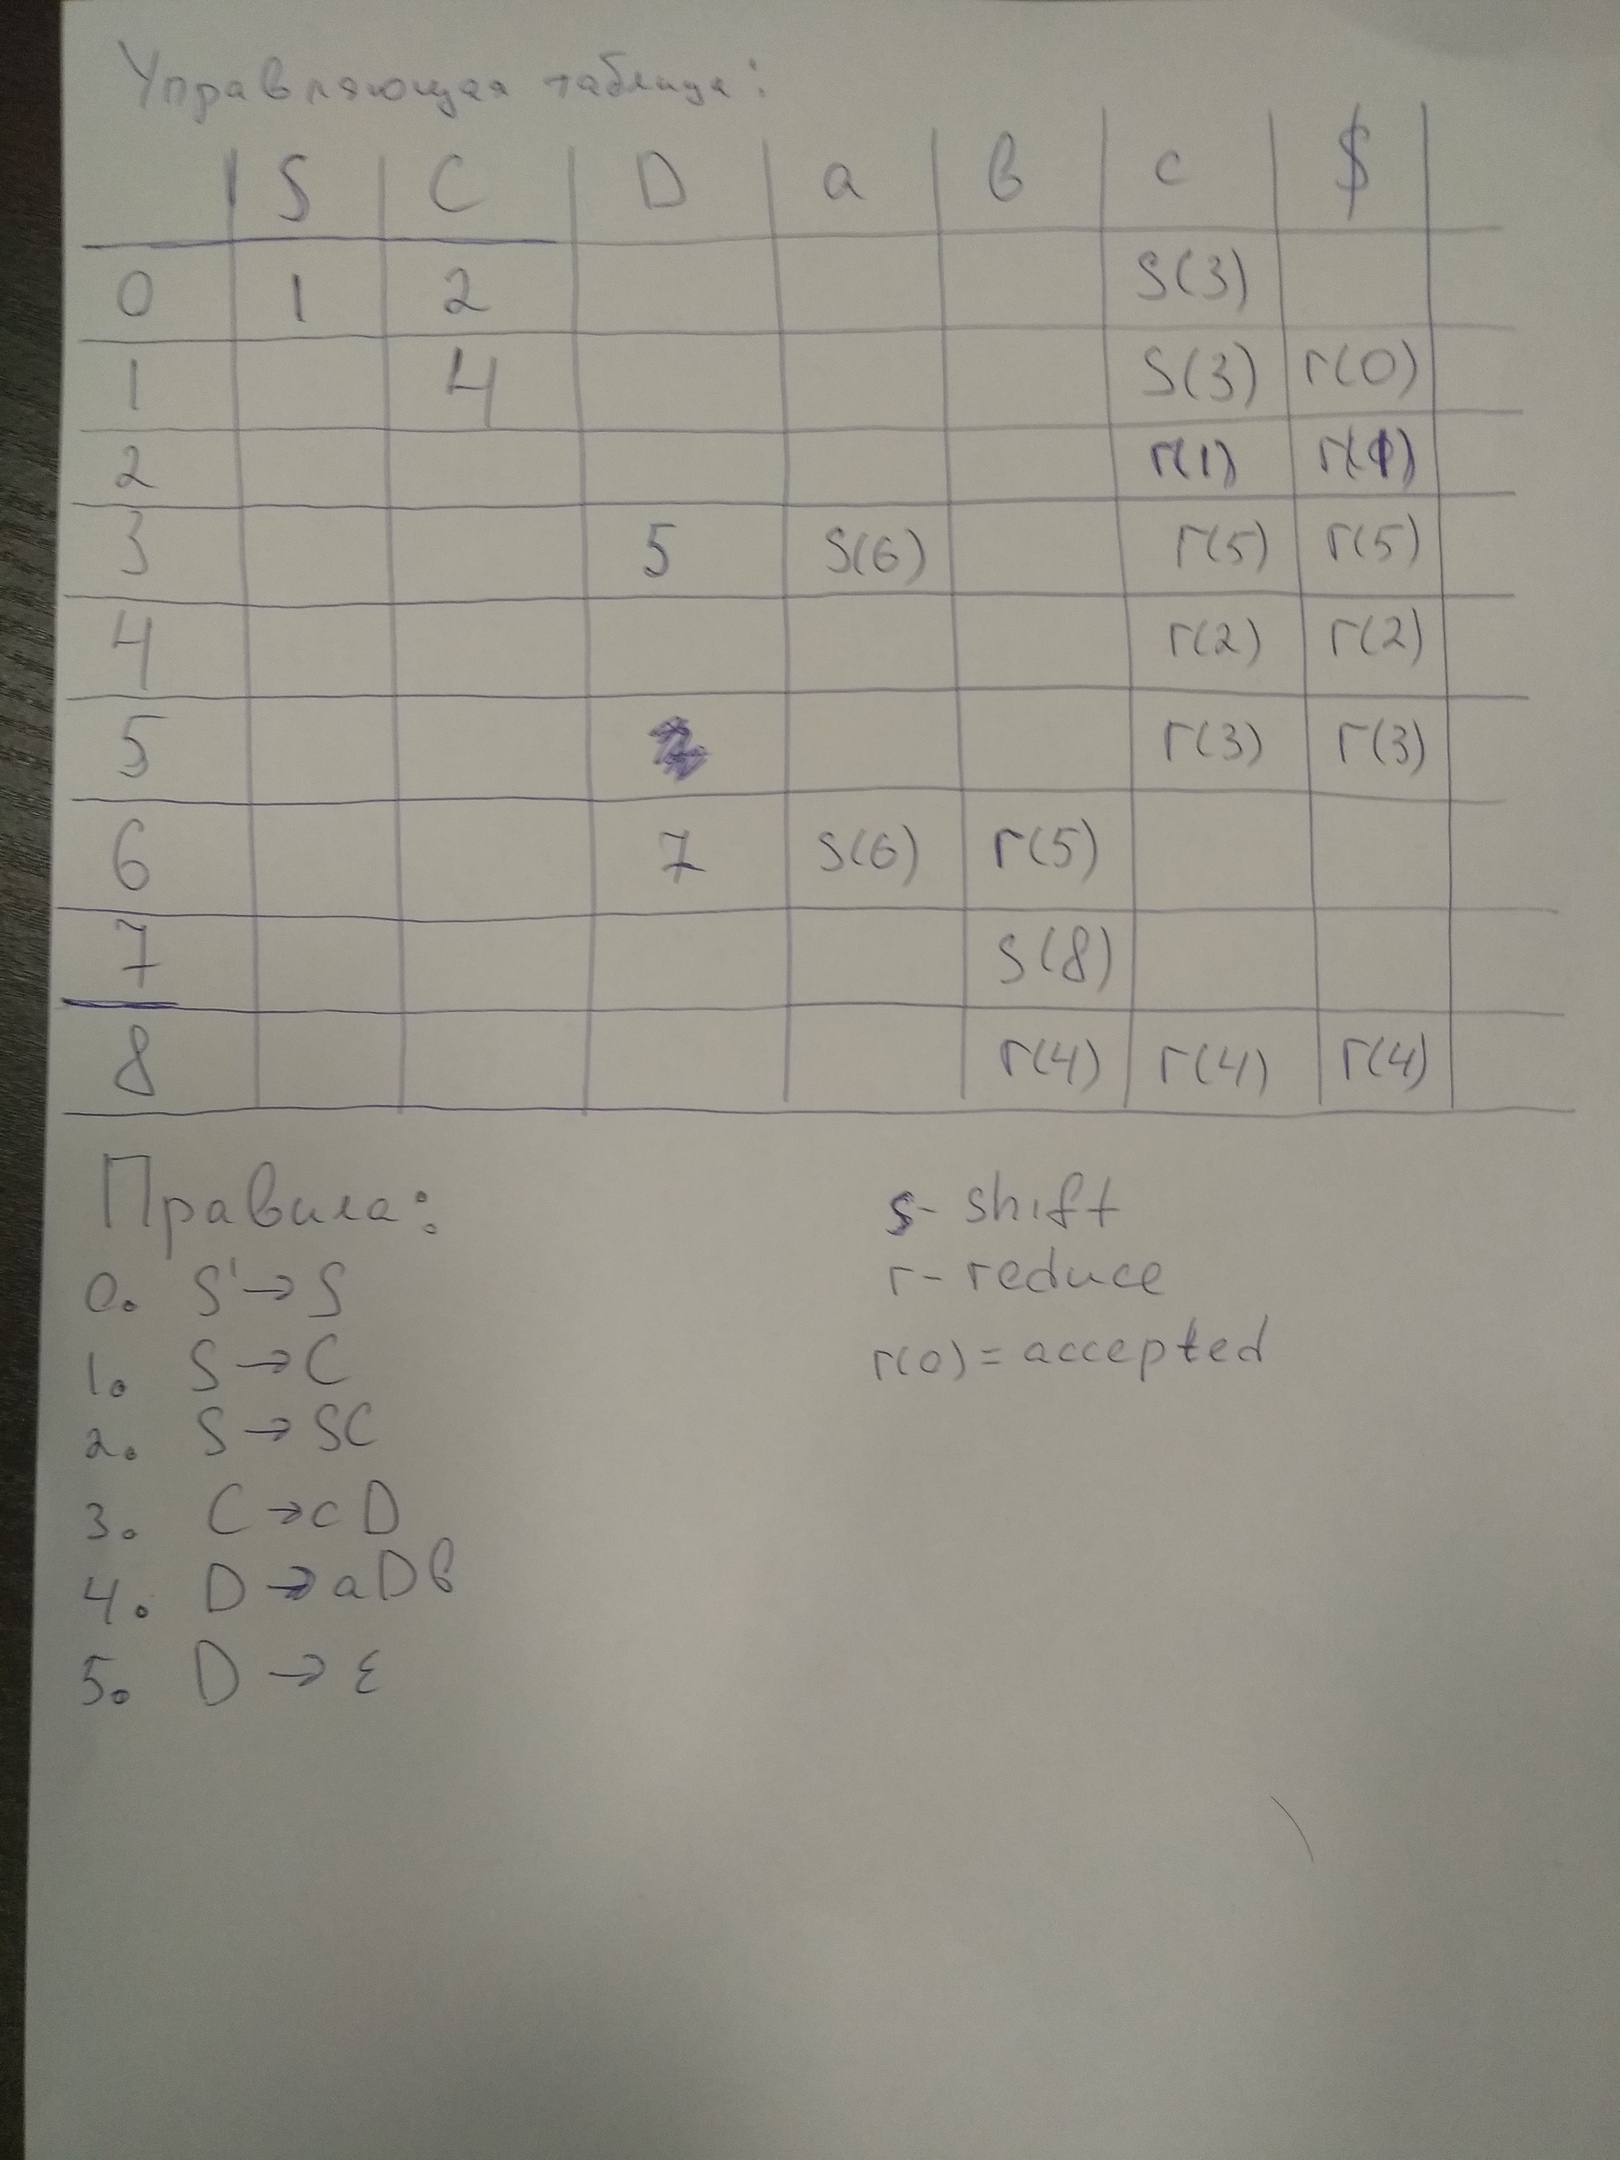 Управляющая таблица:
S C D a b c $
0 1 2 S(3)
1 4 S(3) r(0)
2 r(1) r(1)
3 5 S(6) r(5) r(5)
4 r(2) r(2)
5 r(3) r(3)
6 7 S(6) r(5)
7 S(8)
8 r(4) r(4) r(4)
Правила:
0. S' → S
1. S → C
2. S → SC
3. C → cD
4. D → aDb
5. D → ε
s - shift
r - reduce
r(0) = accepted